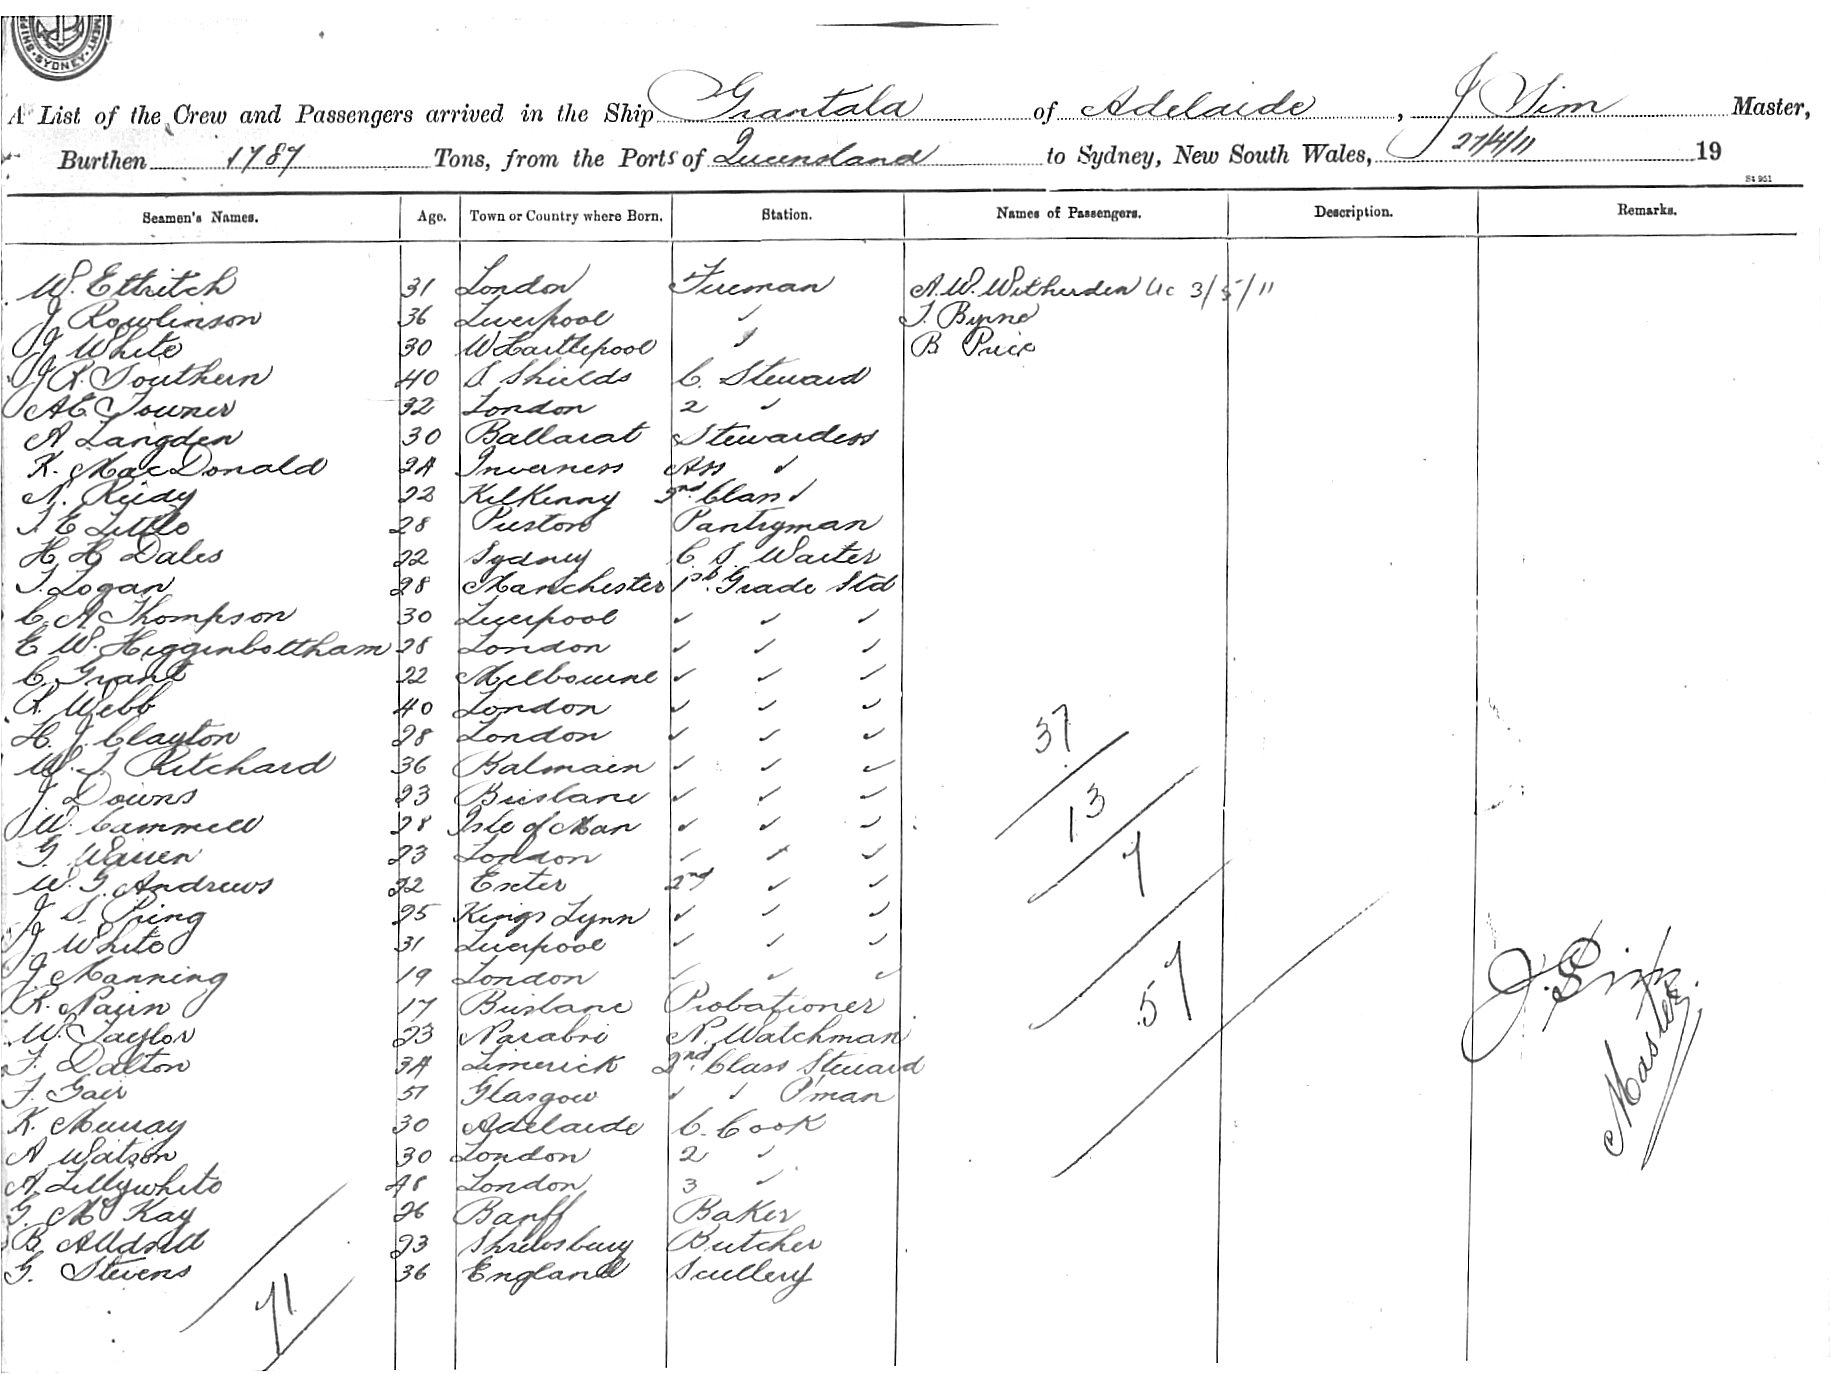 SYDNEY
A List of the Crew and Passengers arrived in the Ship Grantala of Adelaide, J Sim Master,
Burthen 1787 Tons, from the Ports of Queensland to Sydney, New South Wales, 27/4/11 19
St 951
Seamen's Names. Age. Town or Country where Born. Station. Names of Passengers. Description. Remarks.
W. Ettritch 31 London Fireman A. W. Witherden 3/5/11
J Rowlinson 36 Liverpool " T. Byrne
J White 30 W Hartlepool " B Price
J R. Southern 40 S Shields C. Steward
A E Towner 32 London 2 "
A Langden 30 Ballarat Stewardess
K. MacDonald 24 Inverness Ass "
N. Reidy 22 KilKenny 2nd Class "
T. E Little 28 Preston Pantryman
H H Dales 22 Sydney C. S. Waiter
T. Logan 28 Manchester 1st Grade Std
C. A Thompson 30 Liverpool " " "
E W. Higginbottham 28 London " " "
C. Grant 22 Melbourne " " "
R. Webb 40 London " " "
H. J. Clayton 28 London " " "
W. J. Pritchard 36 Balmain " " "
J Downs 23 Brisbane " " "
W. Cammell 28 Isle of Man " " "
G. Warren 23 London " " "
W. G. Andrews 22 Exeter 2nd " "
J S. Pring 25 Kings Lynn " " "
J. White 31 Liverpool " " "
J Manning 19 London " " "
R. Nairn 17 Brisbane Probationer
W. Taylor 23 Narabri N. Watchman
F. Dalton 34 Limerick 2nd Class Steward
F. Gair 51 Glasgow " " P'man
K. Murray 30 Adelaide C. Cook
A Watson 30 London 2 "
A Lillywhite 48 London 3 "
G. McKay 26 Banff Baker
B Alldred 23 Shrewsbury Butcher
G. Stevens 36 England Scullery
37
13
7
57
71
J. Sim
Master